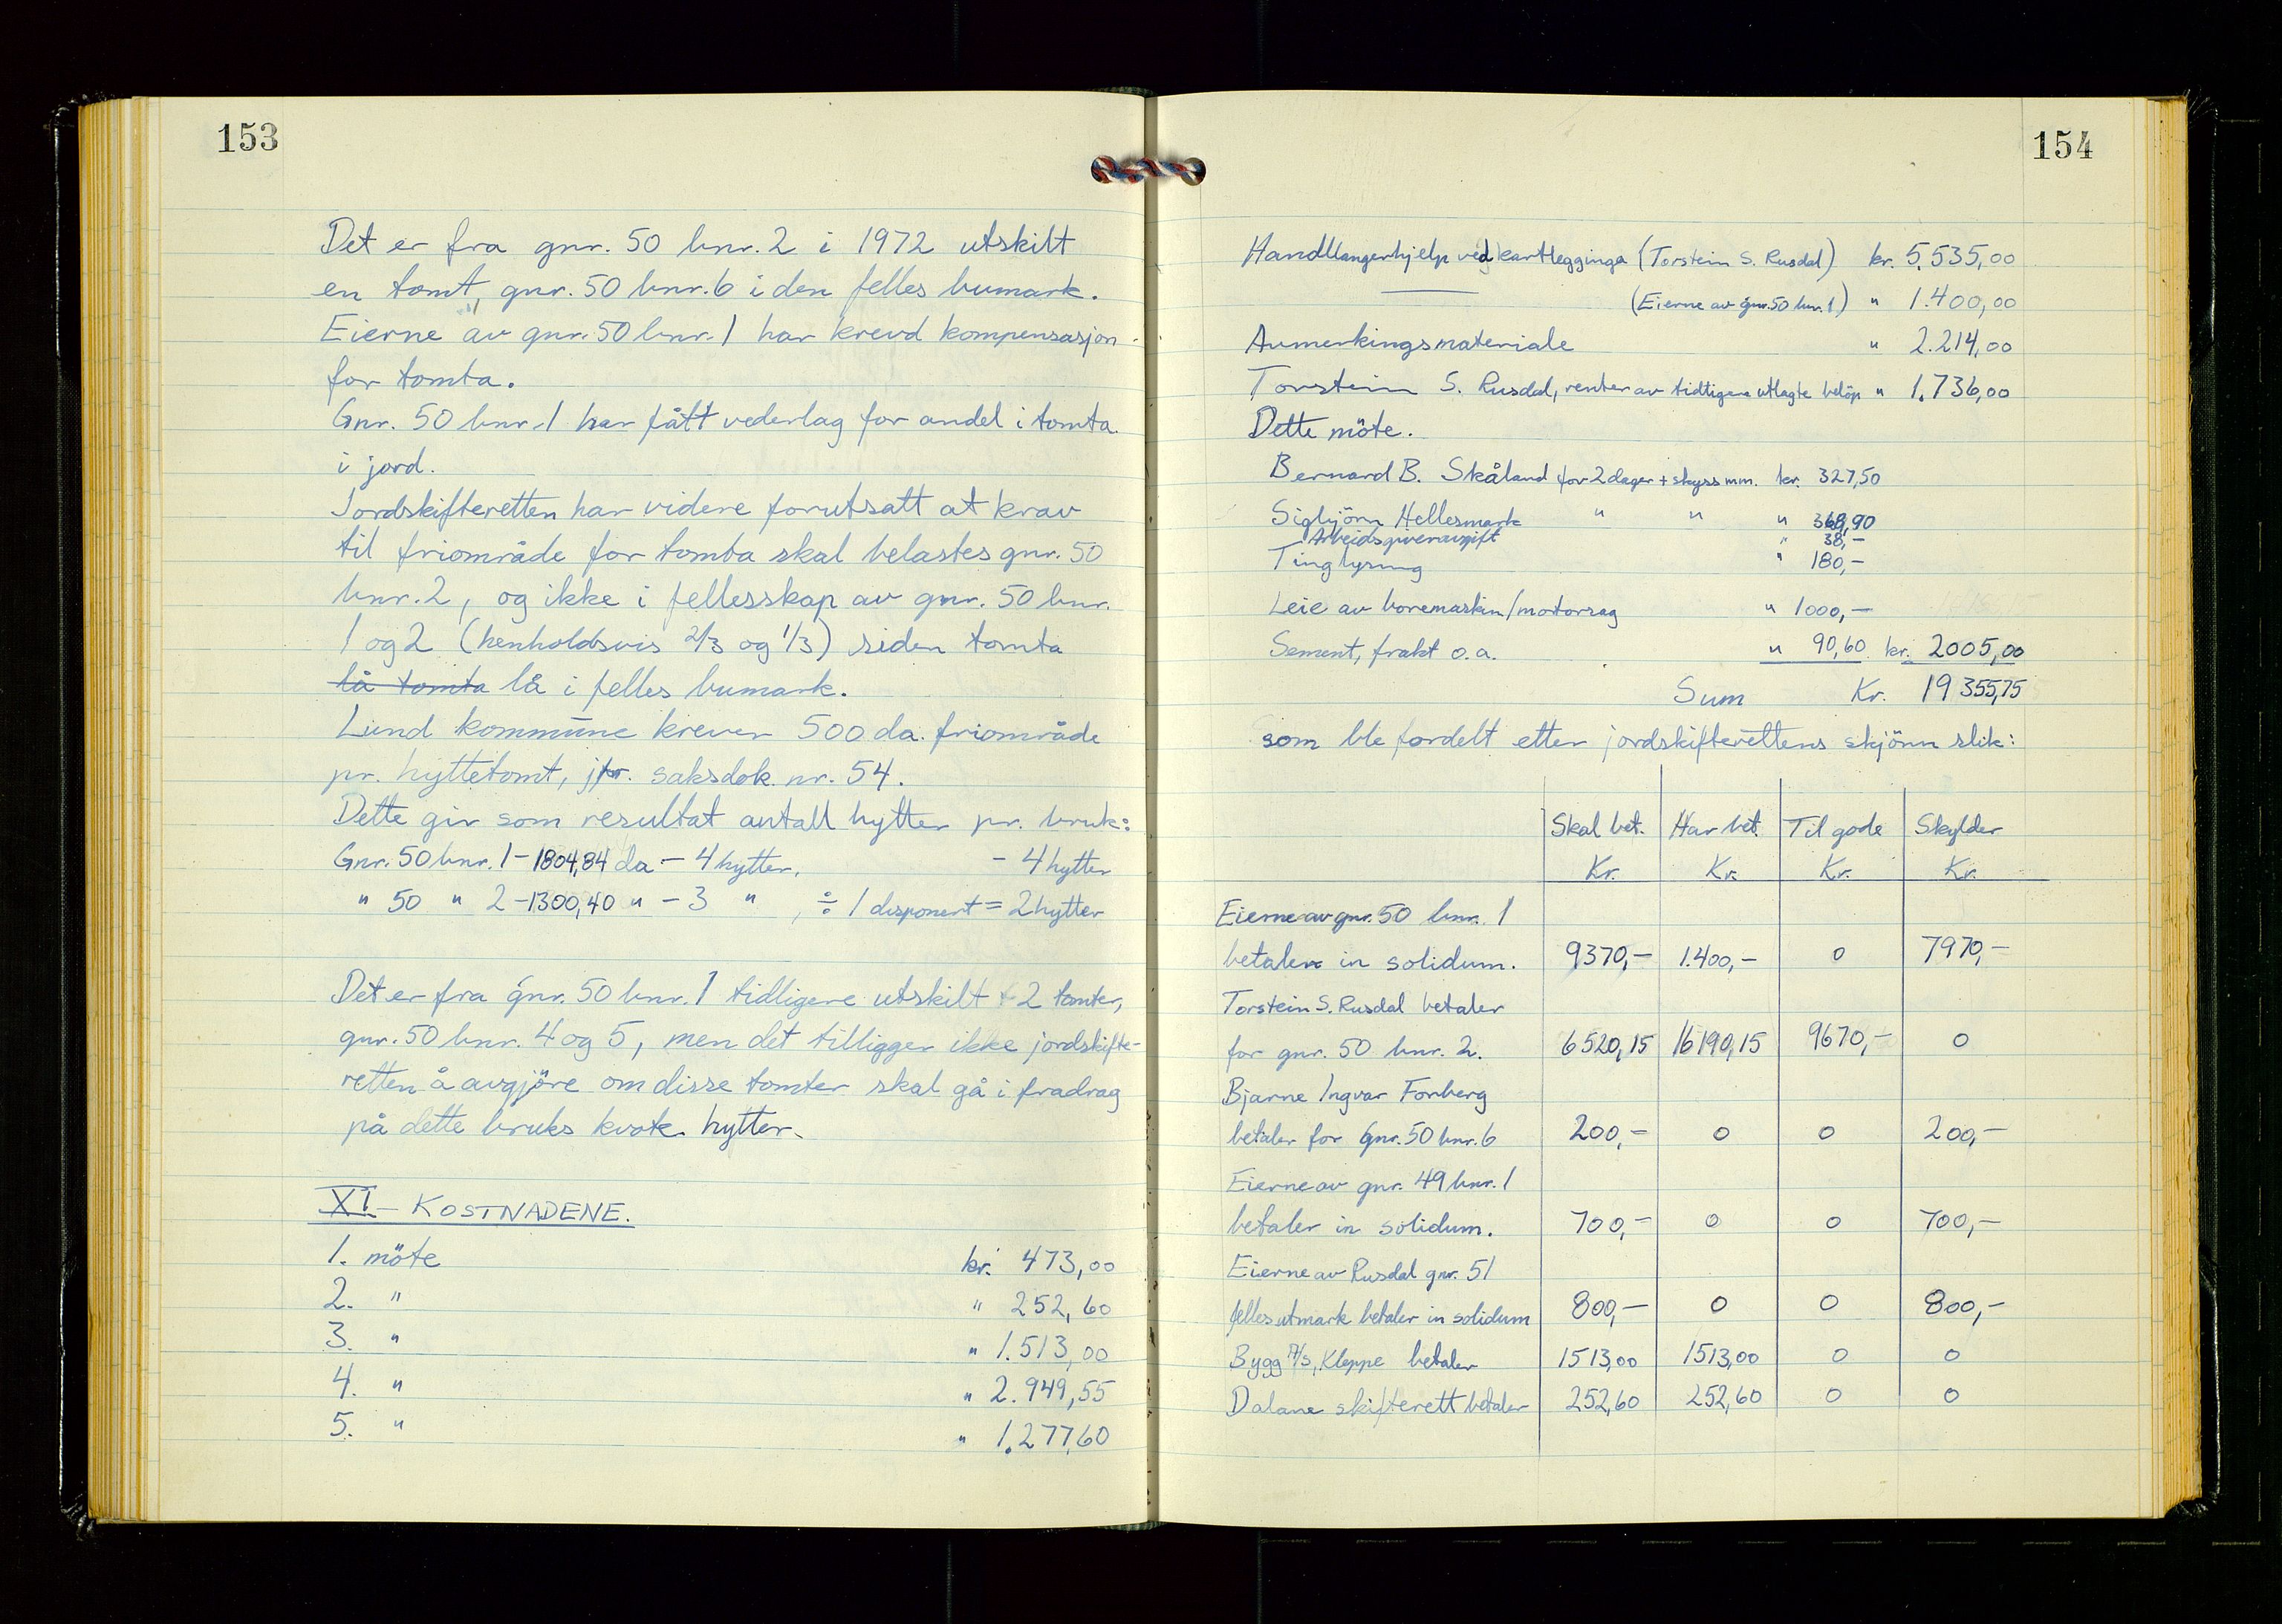 153
Det er fra gnr. 50 bnr. 2 i 1972 utskilt
en tomt, gnr. 50 bnr. 6 i den felles bumark.
Eierne av gnr. 50 bnr. 1 har krevd kompensasjon
for tomta.
Gnr. 50 bnr. 1 har fått vederlag for andel i tomta
i jord.
Jordskifteretten har videre forutsatt at krav
til friområde for tomta skal belastes gnr. 50
bnr. 2, og ikke i fellesskap av gnr. 50 bnr.
1 og 2 (henholdsvis 2/3 og 1/3) siden tomta
lå tomta lå i felles bumark.
Lund kommune krever 500 da. friområde
pr. hyttetomt, jfr. saksdok. nr. 54.
Dette gir som resultat antall hytter pr. bruk:
Gnr. 50 bnr. 1 - 1804,84 da - 4 hytter, - 4 hytter
" 50 " 2 - 1300,40 " - 3 " , ÷ 1 disponert = 2 hytter
Det er fra gnr. 50 bnr. 1 tidligere utskilt 2 tomter,
gnr. 50 bnr. 4 og 5, men det tilligger ikke jordskifte-
retten å avgjöre om disse tomter skal gå i fradrag
på dette bruks kvote hytter.
XI - KOSTNADENE.
1. möte kr. 473,00
2. " " 252,60
3. " " 1.513,00
4. " " 2.949,55
5. " " 1.277,60
154
Handllangerhjelp ved kartlegginga (Torstein S. Rusdal) kr. 5.535,00
— (Eierne av gnr. 50 bnr. 1) " 1.400,00
Avmerkingsmateriale " 2.214,00
Torstein S. Rusdal, renter av tidligere utlagte belöp " 1.736,00
Dette möte.
Bernard B. Skåland for 2 dager + skyss m.m. kr. 327,50
Sigbjörn Hellesmark " " " 368,90
Arbeidsgiveravgift " 38,-
Tinglysning " 180,-
Leie av boremaskin/motorsag " 1000,-
Sement, frakt o.a. " 90,60 kr. 2005,00
Sum Kr. 19 355,75
som ble fordelt etter jordskifterettens skjönn slik:
Skal bet. Har bet. Til gode Skylder
Kr. Kr. Kr. Kr.
Eierne av gnr. 50 bnr. 1
betaler in solidum. 9370,- 1.400,- 0 7970,-
Torstein S. Rusdal betaler
for gnr. 50 bnr. 2. 6520,15 16190,15 9670,- 0
Bjarne Ingvar Forberg
betaler for Gnr. 50 bnr. 6 200,- 0 0 200,-
Eierne av gnr. 49 bnr. 1
betaler in solidum. 700,- 0 0 700,-
Eierne av Rusdal gnr. 51
felles utmark betaler in solidum 800,- 0 0 800,-
Bygg A/S, Kleppe betaler 1513,00 1513,00 0 0
Dalane skifterett betaler 252,60 252,60 0 0